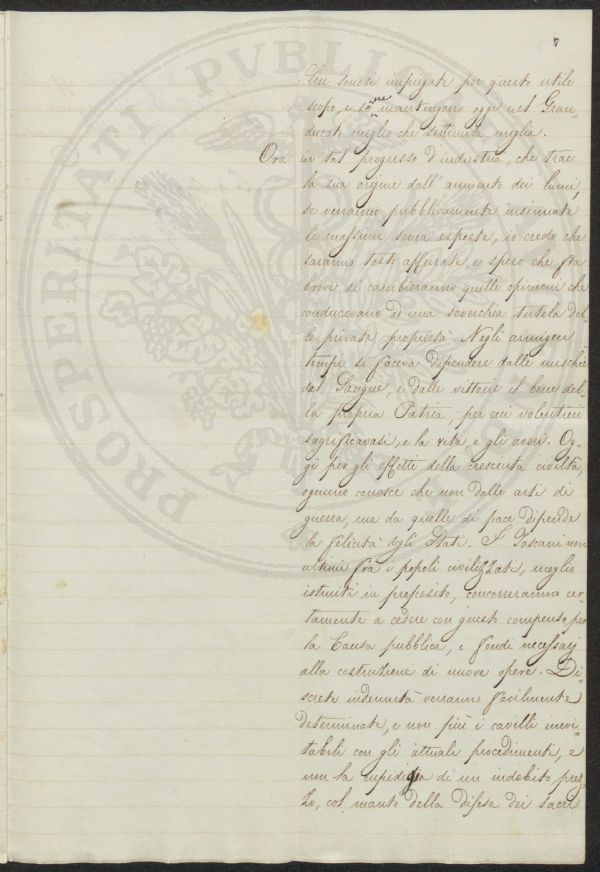 7
Lire sonosi impiegate per questo utile
scopo, e se ne mantengono oggi nel Gran-
ducato meglio che settemila miglia.
Ora in tal progresso d'industria, che trae
la sua origine dall'aumento dei lumi,
se verranno pubblicamente insinuate
le massime sovra esposte, io credo che
saranno tosto afferrate, e spero che fra
breve si cambieranno quelle opinioni che
conducevano ad una soverchia tutela del
le private proprietà. Negli armigeri
tempi si faceva dipendere dalle mischie
del Sangue, e dalle vittorie il bene del-
la propria Patria; per cui volentieri
sagrificavasi, e la vita, e gli averi. Og-
gi per gli effetti della cresciuta civiltà,
ognuno conosce che non dalle arti di
guerra, ma da quelle di pace dipende
la felicità degli Stati. I Toscani non
ultimi fra i popoli civilizzati, meglio
istruiti in proposito, concorreranno cer-
tamente a cedere con giusto compenso per
la Causa pubblica, i fondi necessarj
alla costruzione di nuove opere. Di-
screte indennità verranno facilmente
determinate, e non più i cavilli inevi-
tabili con gli attuali procedimenti, e
non la cupidigia di un indebito prez-
zo, col manto della difesa dei sacri
PROSPERITATI PVBLICAE